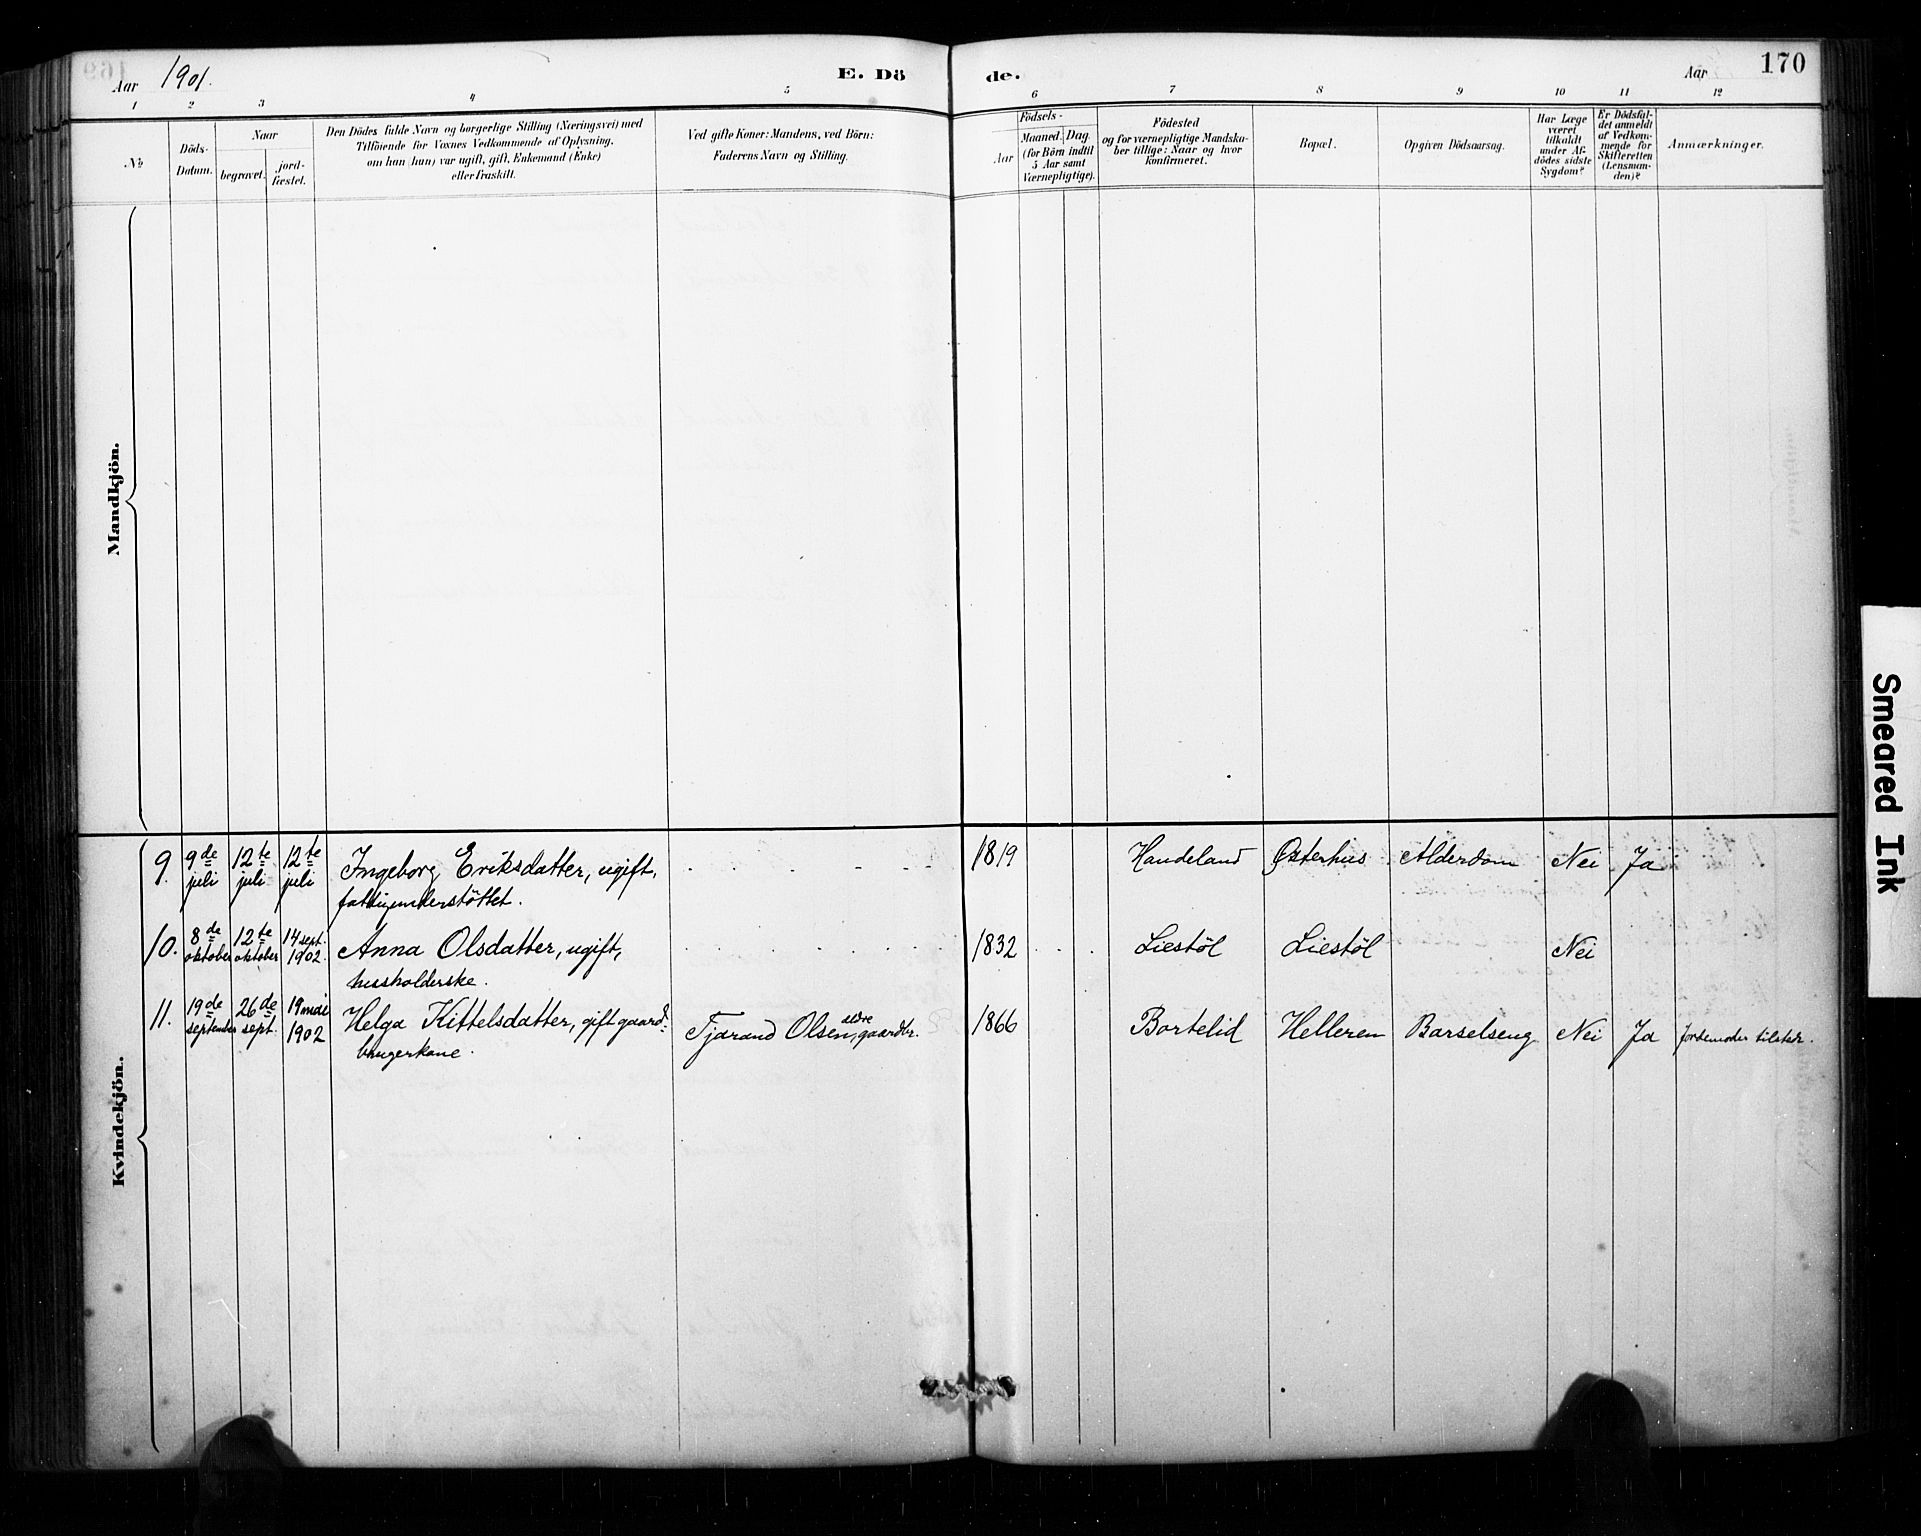 Aar 1901.
E. Dö
de.
Aar
170
1 2 3 4 5 6 7 8 9 10 11 12
No
Döds-
Datum.
Naar
begravet.
jord-
fæstet.
Den Dödes fulde Navn og borgerlige Stilling (Næringsvei) med
Tilföiende for Voxnes Vedkommende af Oplysning,
om han (hun) var ugift, gift, Enkemand (Enke)
eller fraskilt.
Ved gifte Koner: Mandens, ved Börn:
Faderens Navn og Stilling.
Födsels-
Aar
Maaned.
Dag.
(for Börn indtil
5 Aar samt
Værnepligtige).
Födested
og for værnepligtige Mandska-
ber tillige: Naar og hvor
konfirmeret.
Bopæl.
Opgiven Dödsaarsag.
Har Læge
været
tilkaldt
under Af-
dödes sidste
Sygdom?
Er Dödsfal-
det anmeldt
af Vedkom-
mende for
Skifteretten
(Lensman-
den)?
Anmærkninger.
Mandkjön.
Kvindekjön.
9. 9de juli 12te juli 12te juli Ingeborg Eriksdatter, ugift, 1819 Handeland Østerhus Alderdom Nei Ja
fattigunderstöttet.
10. 8de oktober 12te oktober 14 sept. 1902. Anna Olsdatter, ugift, 1832 Liestöl Liestöl Nei
husholderske.
11. 19de september 26de sept. 19 mai 1902 Helga Kittelsdatter, gift gaard- Tjørand Olsen, ældre gaardbr. 1866 Bortelid Helleren Barselseng Nei Ja jordemoder tilstede.
brugerkone.
Smeared Ink